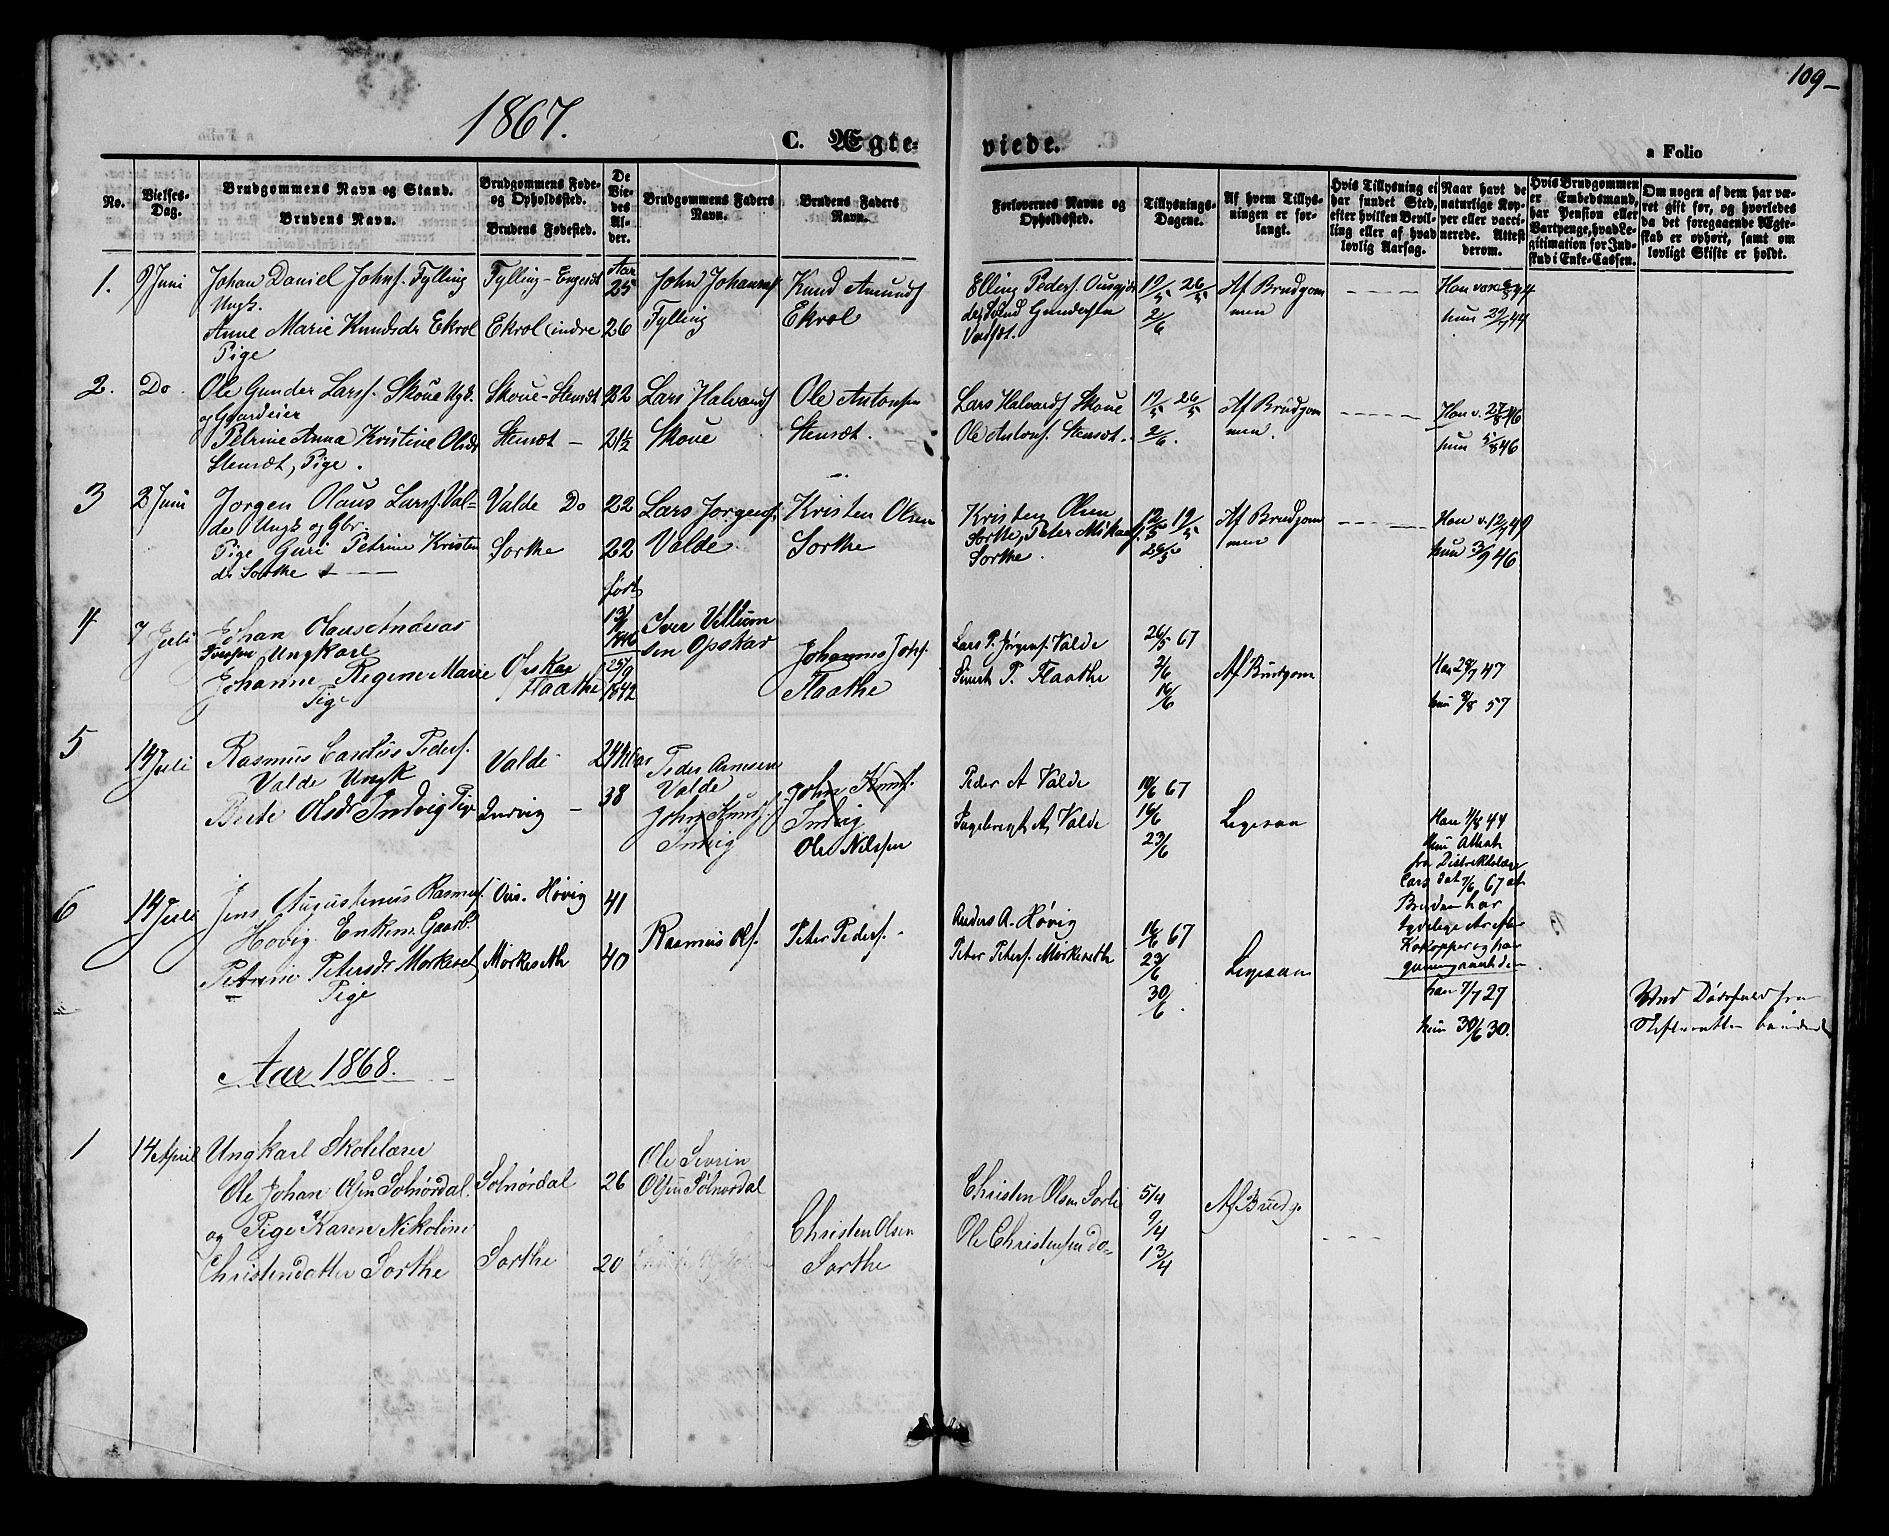 109
1867.
C. Ægte-
viede.
a Folio
No.
Vielses-
Dag.
Brudgommens Navn og Stand.
Brudens Navn.
Brudgommens Føde-
og Opholdssted.
Brudens Fødested.
De
Vie-
des
Al-
der.
Brudgommens Faders
Navn.
Brudens Faders
Navn.
Forlovernes Navne og
Opholdssted.
Tillysnings-
Dagene.
Af hvem Tillys-
ningen er for-
langt.
Hvis Tillysning ei
har fundet Sted,
efter hvilken Bevil-
ling eller af hvad
lovlig Aarsag.
Naar havt de
naturlige Kop-
per eller vacci-
nerede. Attest
derom.
Hvis Brudgommen
er Embedsmand,
har Pension eller
Vartpenge, hvad Le-
gitimation for Ind-
skud i Enke-Cassen.
Om nogen af dem har væ-
ret gift før, og hvorledes
da det foregaaende Ægte-
skab er ophørt, samt om
lovligt Skifte er holdt.
1. 9 Juni Johan Daniel Johns. Fylling
Ungk.
Anne Marie Knudsdr Ekrol
Pige
Fylling - Engesdt
Ekrol (indre
Aar
25
26
John Johanns
Fylling
Knud Amunds
Ekrol
Elling Peders.
19/5 26/5
2/6
Af Brudgom
men
Han vax 44
hun 29/7 44
2. Do Ole Gunder Larss. Skoue Ugk.
og Gaardeier
Petrine Anna Kristine Olsdr
Stensæt, Pige.
Skoue - Stensdt
Stensæt -
22
21½
Lars Halvards
Skoue
Ole Antonsen
Stensæt.
Lars Halvards Skoue
Ole Antons. Stensæt.
19/5 26/5
2/6.
Af Brudgom
men.
Han v. 27/8 46
hun 5/8 46
3 2 Juni Jørgen Olaus Larss. Val-
de Ungk og Gbr.
Pige Guri Petrine Kristen
dr Sorthe
Valde Do
Sorthe
22
22
Lars Jørgens.
Valde.
Kristen Olsen
Sorthe
Kristen Olsen
Sorthe, Peter Mikaels
Sorthe.
12/5 19/5
26/5
Af Brudgom
men
Han v. 12/7 49
hun 3/9 46
4 7 Juli Johan Olaus Andreas
Iversen Ungkarl
Johanne Regine Marie
Pige
Opskar
Flaathe
født
1846
25/9
1842
Iver Villum
sen Opskar
Johannes Johs.
Flaathe
Lars P. Jørgens. Valde
Sivert P. Flaathe
26/5 67
2/6
16/6
Af Brudgom
Han 29/7 47
hun 9/8 57
5 14 Juli Rasmus Carelius Peders.
Valde Ungk
Berte Olsdr Indvig Pige
Valde
Indvig -
24
38
Peder Arnesen
Valde
John Knuds.
Indvig
John Knuds.
Indvig
Ole Nilssen
Peder A Valde
Ingebregt A. Valde
10/6 67
16/6
23/6
Ligesaa
Han 4/8 44
Hun Attest
fra Distriktslæge
dat 7/6 67 at
Bruden har
tydelige Ar efter
Kokopper og har
gjennemgaaet dem
6 14 Juli Jens Augustinus Rasmuss.
Høvig Enkem. Gaardb.
Petrine Petersdr Morkeset
Pige
Ous. Høvig
Morkeseth
41
40
Rasmus Ols.
Peter Peders.
Anders A. Høvig
Peter Peters. Morkeseth
16/6 67
23/6
30/6
Ligesaa
han 7/7 27
hun 30/6 30.
Ved Dødsfald
Skifteretten
Aar 1868.
1 14 April Ungkarl Skolelærer
Ole Johan Olsen Solnørdal
og Pige Karen Nikoline
Christendatter Sorthe
Solnørdal
Sorthe
26
20
Ole Sevrin
Olsen Solnørdal
Christen Olsen
Sorthe
Christen Olsen Sorti
Ole Christensen do
5/4
9/4
13/4
Af Brudg.